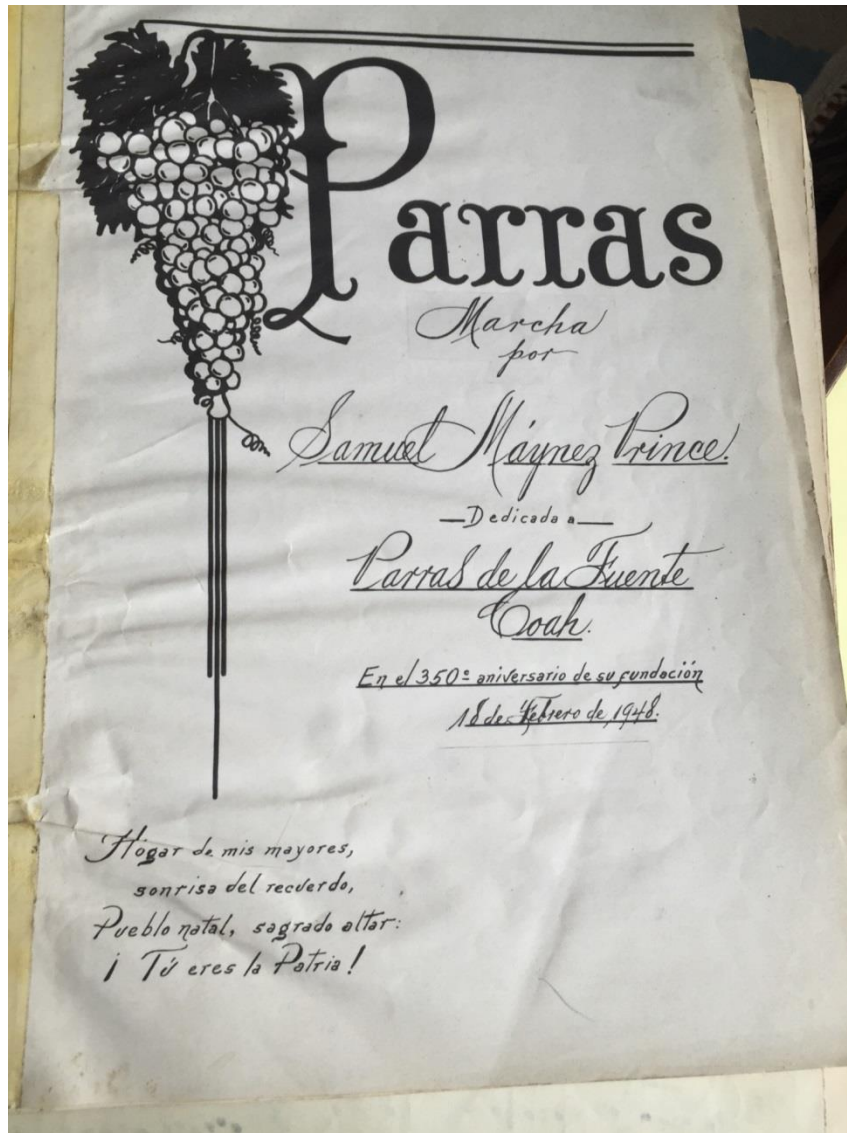 Parras
Marcha
por
Samuel Máynez Prince.
Dedicada a
Parras de la Fuente
Coah.
En el 350º aniversario de su fundación
18 de Febrero de 1948.
Hogar de mis mayores,
sonrisa del recuerdo,
Pueblo natal, sagrado altar:
¡ Tú eres la Patria !